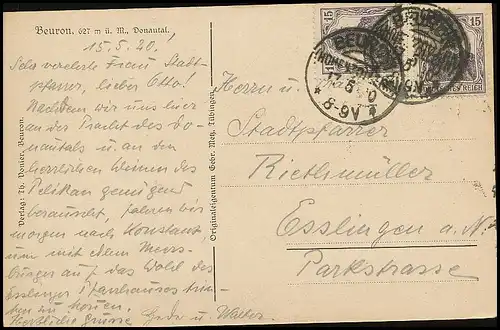 Beuron. 627 m ü. M., Donautal.
15.5.20.
Sehr verehrte Frau Stadt-
pfarrer, lieber Otto!
Nachdem wir uns hier
an der Pracht des Do-
nautals u. an den
herrlichen Weinen des
Pelikan genügend
berauscht, fahren wir
morgen nach Konstanz
um mit edlem Meers-
burger auf das Wohl des
Esslinger Pfarrhauses
Herzliche Grüsse u. Walter.
Verlag: Th. Vonier, Beuron.
Originaleigentum Gebr. Metz, Tübingen
15
15
BEURON
(HOHENZOLLERN)
17.5.20
* 8-9V *
Herrn u.
Stadtpfarrer
Riethmüller
Esslingen a. N.
Parkstrasse